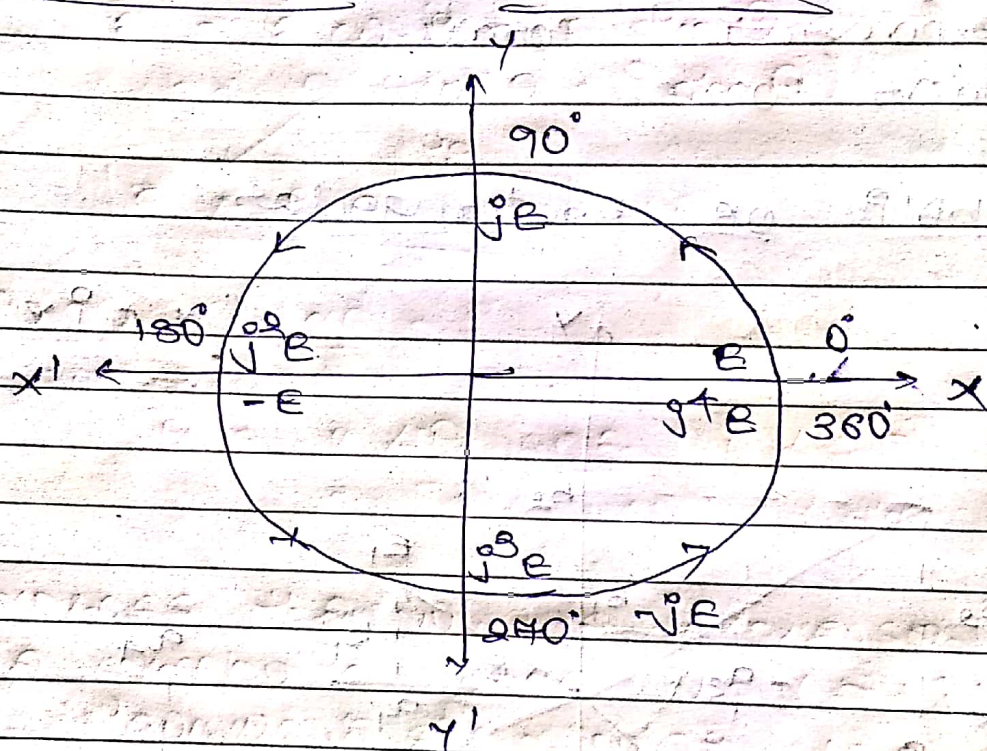 Y
90°
jE
180° j²E
E 0°
X' X
-E
j⁴E 360°
j³E
270° -jE
Y'